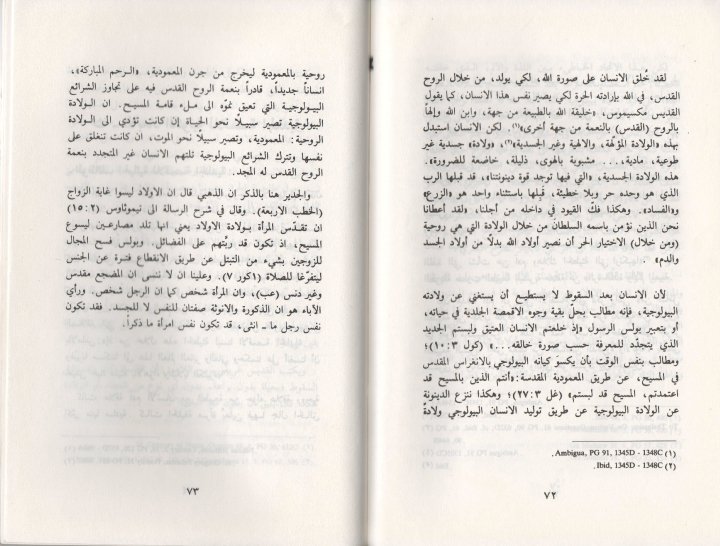 لقد خُلق الانسان على صورة الله، لكي يولد، من خلال الروح
القدس، في الله بإرادته الحرة لكي يصير نفس هذا الانسان، كما يقول
القديس مكسيموس، «خليقة الله بالطبيعة من جهة، وابن الله وإلهاً
بالروح (القدس) بالنعمة من جهة أخرى»(١). لكن الانسان استبدل
بهذه «الولادة المؤلّهة، والالهية وغير الجسدية»(٢)، «ولادة» جسدية غير
طوعية، مادية،... مشبوبة بالهوى، ذليلة، خاضعة للضرورة».
هذه الولادة الجسدية، «التي فيها توجد قوة دينونتنا»، قد قبلها الرب
الذي هو وحده حر وبلا خطيئة، قبلها باستثناء واحد هو «الزرع»
و«الفساد». وهكذا فكّ القيود في داخله من أجلنا، «لقد أعطانا
نحن الذين نؤمن باسمه السلطان من خلال الولادة التي هي روحية
(ومن خلال) الاختيار الحر أن نصير أولاد الله بدلاً من أولاد الجسد
والدم»
لأن الانسان بعد السقوط لا يستطيع أن يستغني عن ولادته
البيولوجية، فإنه مطالب بحلّ بقية وجوه الاقمصة الجلدية في حياته،
أو بتعبير بولس الرسول «إذ خلعتم الانسان العتيق ولبستم الجديد
الذي يتجدّد للمعرفة حسب صورة خالقه...» (كول ٣: ١٠)؛
ومطالب بنفس الوقت بأن يكسوَ كيانه البيولوجي بالانغراس المقدس
في المسيح، عن طريق المعمودية المقدسة: «أنتم الذين بالمسيح قد
اعتمدتم، المسيح قد لبستم» (غل ٣: ٢٧)؛ وهكذا ننزع الدينونة
عن الولادة البيولوجية عن طريق توليد الانسان البيولوجي ولادةً
(١) Ambigua, PG 91, 1345D - 1348C.
(٢) Ibid, 1345D - 1348C.
٧٢
روحية بالمعمودية ليخرج من جرن المعمودية، «الـرحم المباركة»،
انساناً جديداً، قادراً بنعمة الروح القدس فيه على تجاوز الشرائع
البيولوجية التي تعيق نموّه الى ملء قامة المسيح. ان الولادة
البيولوجية تصير سبيلاً نحو الحياة إن كانت تؤدي الى الولادة
الروحية: المعمودية، وتصير سبيلاً نحو الموت، ان كانت تنغلق على
نفسها وتترك الشرائع البيولوجية تلتهم الانسان غير المتجدد بنعمة
الروح القدس له المجد.
والجدير هنا بالذكر ان الذهبي قال ان الاولاد ليسوا غاية الزواج
(الخطب الاربعة). وقال في شرح الرسالة الى تيموثاوس (٢: ١٥)
ان تقـدّس المرأة بـولادة الاولاد يعني انها تلد مصارعـين ليسوع
المسيح، اذ تكون قد ربّتهم على الفضائل. وبولس فسح المجال
للزوجين بشيء من التبتل عن طريق الانقطاع فترة عن الجنس
ليتفرّغا للصلاة (١كور ٧). وعلينا ان لا ننسى ان المضجع مقدس
وغير دنس (عب)، وان المرأة شخص كما ان الرجل شخص. ورأي
الآباء هو ان الذكورة والانوثة صفتان للنفس لا للجسد. فقد تكون
نفس رجل ما ـ انثى، قد تكون نفس امرأة ما ذكراً.
٧٣